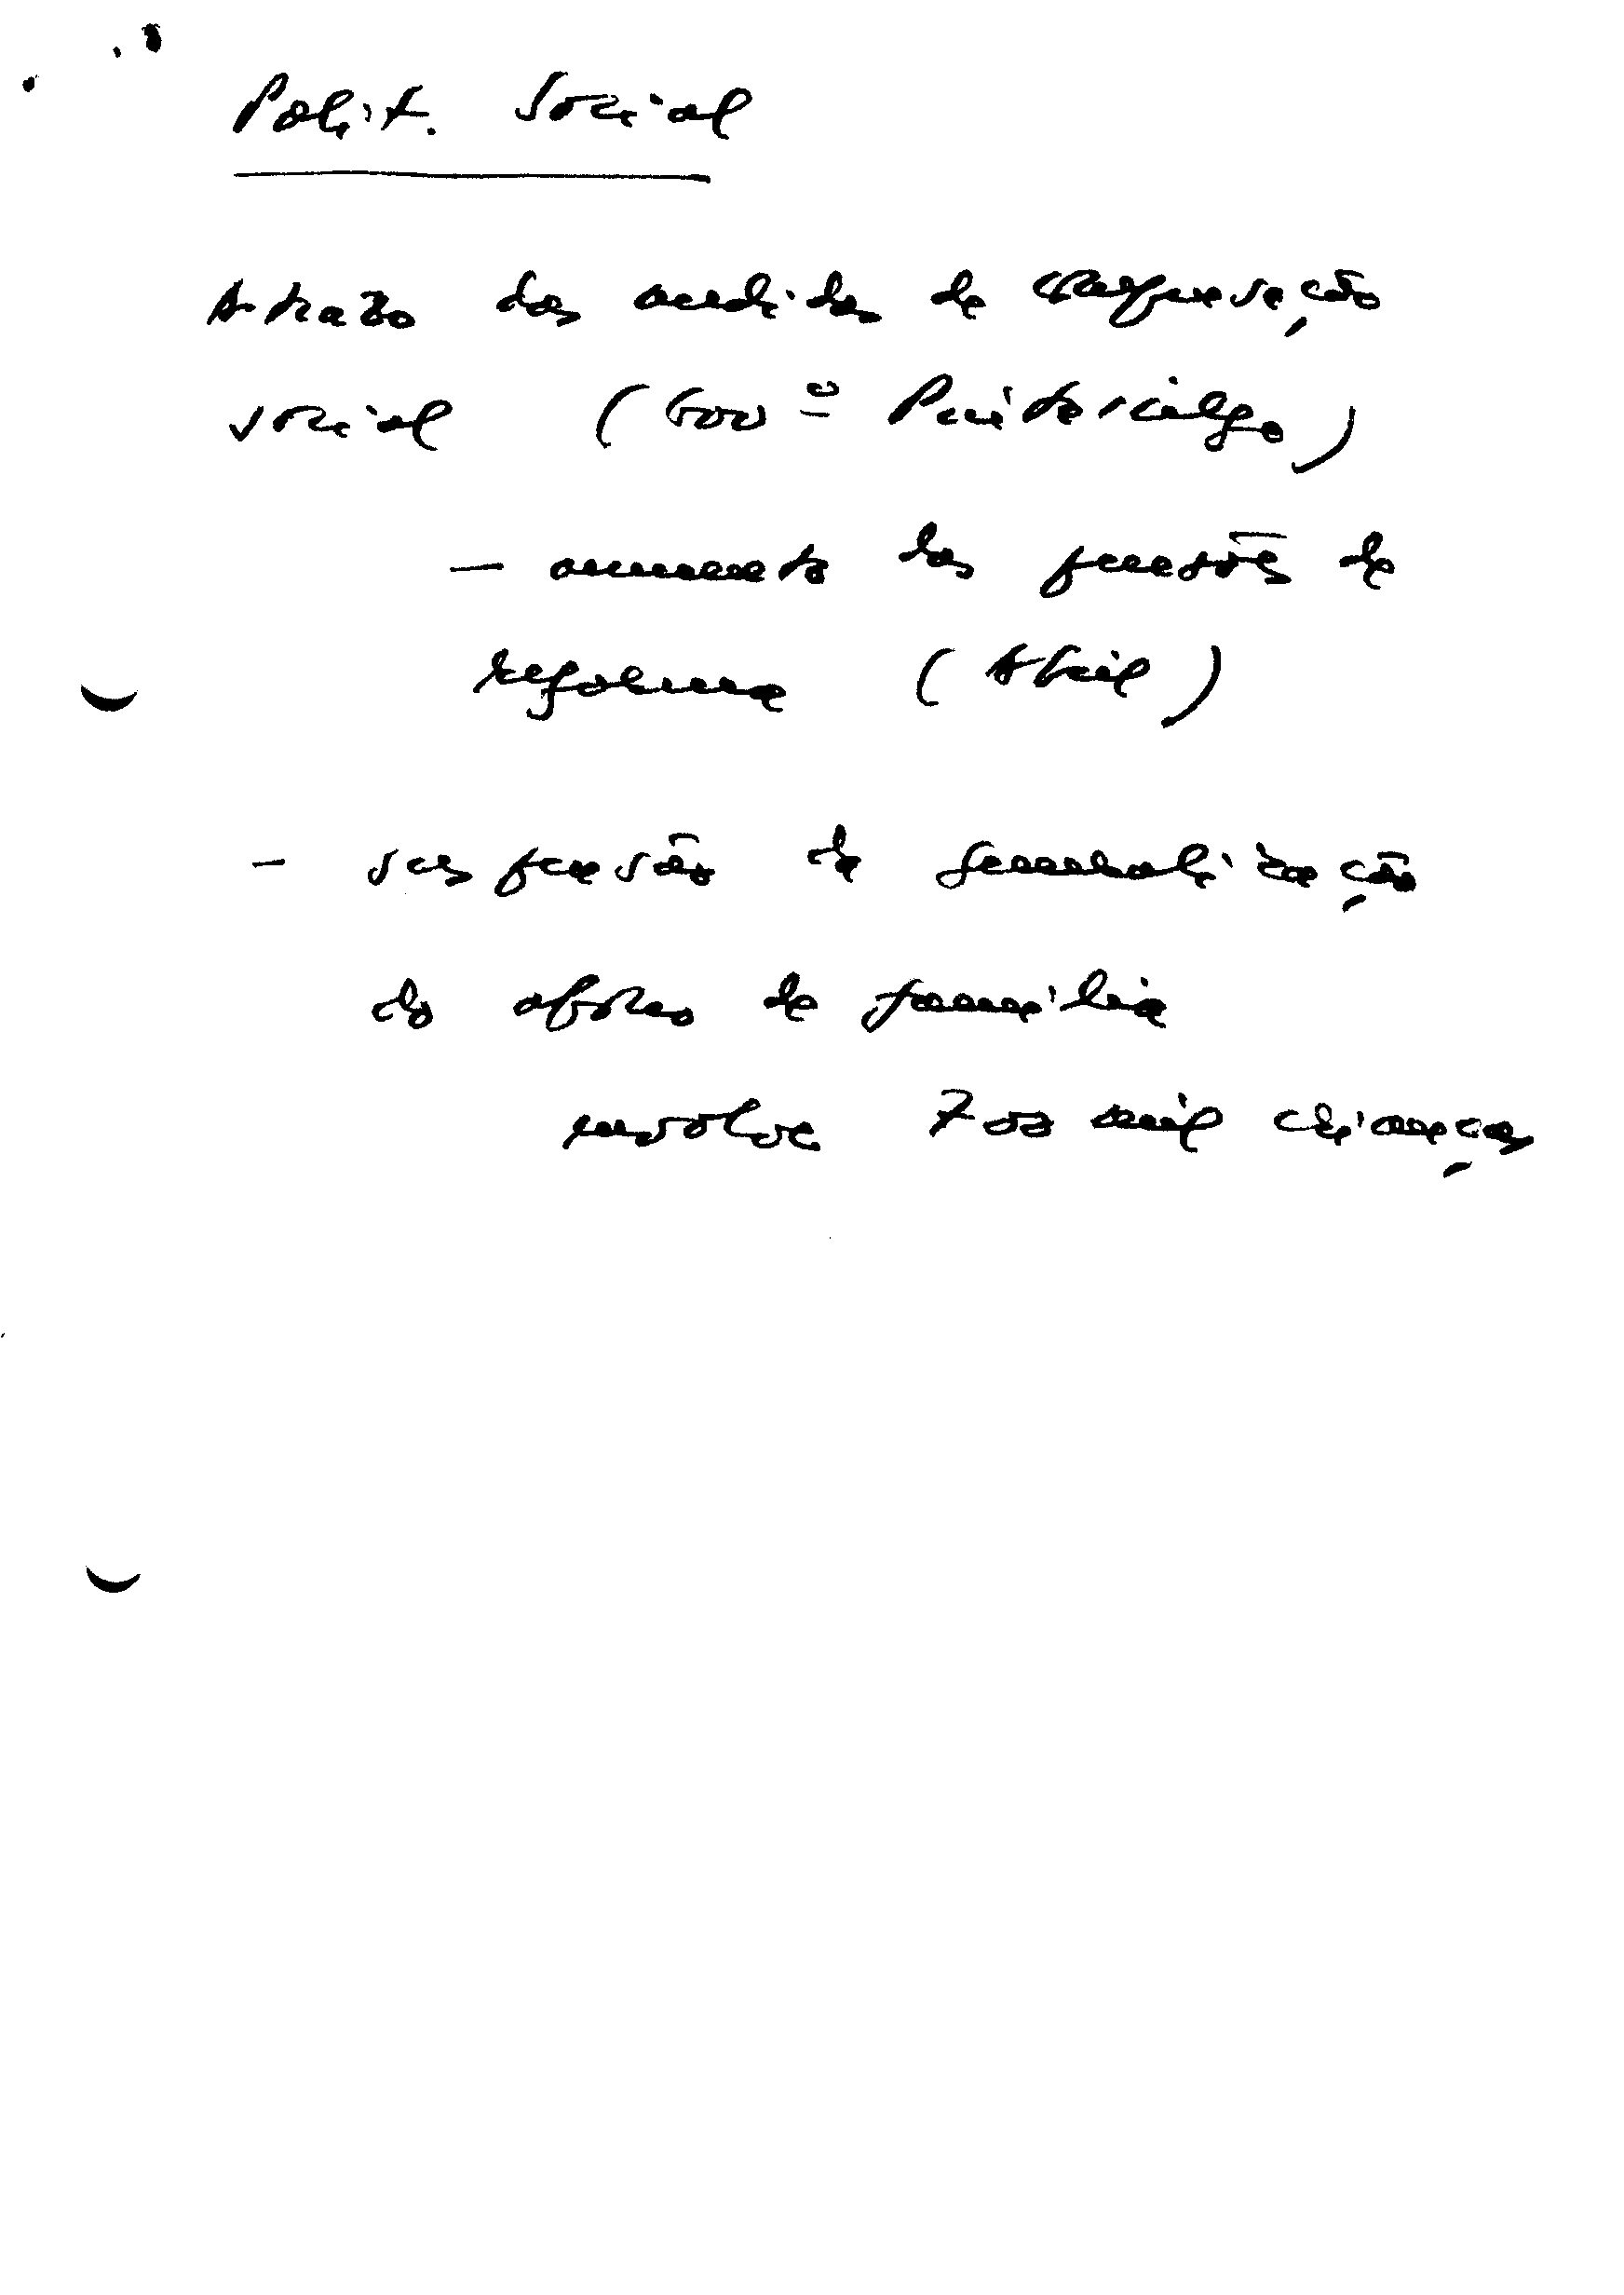 Polit. Social
Atrazo das medidas de compensação
social (Govº Pintasilgo)
— aumento das pensões de
reforma (Abril)
- suspensão da generalização
do abono de família
envolve 700 mil crianças